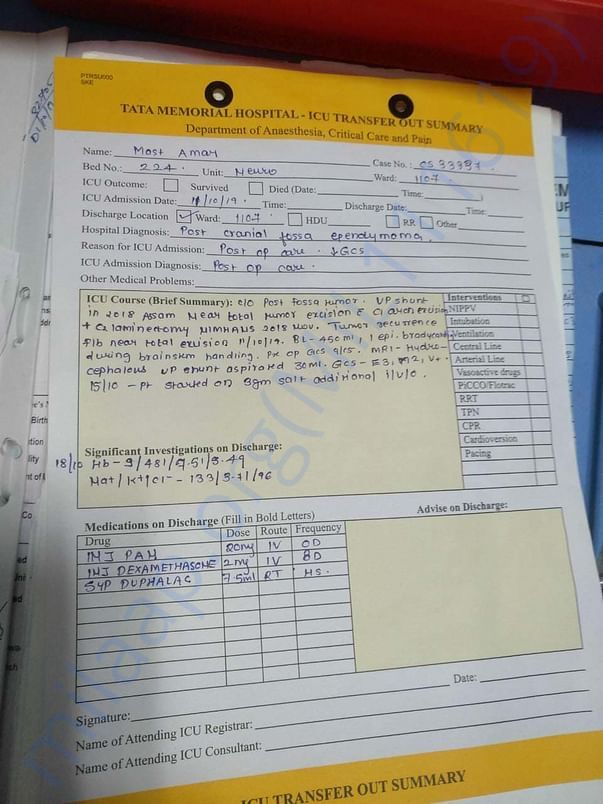 PTRSU000
SKE
TATA MEMORIAL HOSPITAL - ICU TRANSFER OUT SUMMARY
Department of Anaesthesia, Critical Care and Pain
Name: Mast Amar
Case No.: CS 33387
Bed No.: 224 Unit: Neuro Ward: 1107
ICU Outcome: Survived Died (Date: Time: )
ICU Admission Date: 11/10/19 Time: Discharge Date: Time:
Discharge Location Ward: 1107 HDU RR Other
Hospital Diagnosis: Post cranial fossa ependymoma.
Reason for ICU Admission: Post op care. ↓GCS
ICU Admission Diagnosis: Post op care.
Other Medical Problems:
ICU Course (Brief Summary): c/o Post fossa tumor. VP shunt
in 2018 Assam Near total tumor excision C̄ C1 arch
+ C2 laminectomy NIMHANS 2018 Nov. Tumor recurrence
f/b near total excision 11/10/19. BL - 450ml, 1 epi. bradycardia
during brainstem handling. Pre op GCS 9/15. MRI - Hydro-
cephalous VP shunt aspirated 30ml. GCS - E3, M2, V
15/10 - Pt started on 3gm salt additional i/v/o.
Interventions
NIPPV
Intubation
Ventilation
Central Line
Arterial Line
Vasoactive drugs
PiCCO/Flotrac
RRT
TPN
CPR
Cardioversion
Pacing
Significant Investigations on Discharge:
18/10 Hb - 9/481/9.51/3.49
Na+/K+/Cl- - 133/3.71/96
Medications on Discharge (Fill in Bold Letters)
Advise on Discharge:
Drug Dose Route Frequency
INJ PAN 20mg IV OD
INJ DEXAMETHASONE 2mg IV BD
SYP DUPHALAC 7.5ml RT HS.
Date:
Signature:
Name of Attending ICU Registrar:
Name of Attending ICU Consultant:
ICU TRANSFER OUT SUMMARY